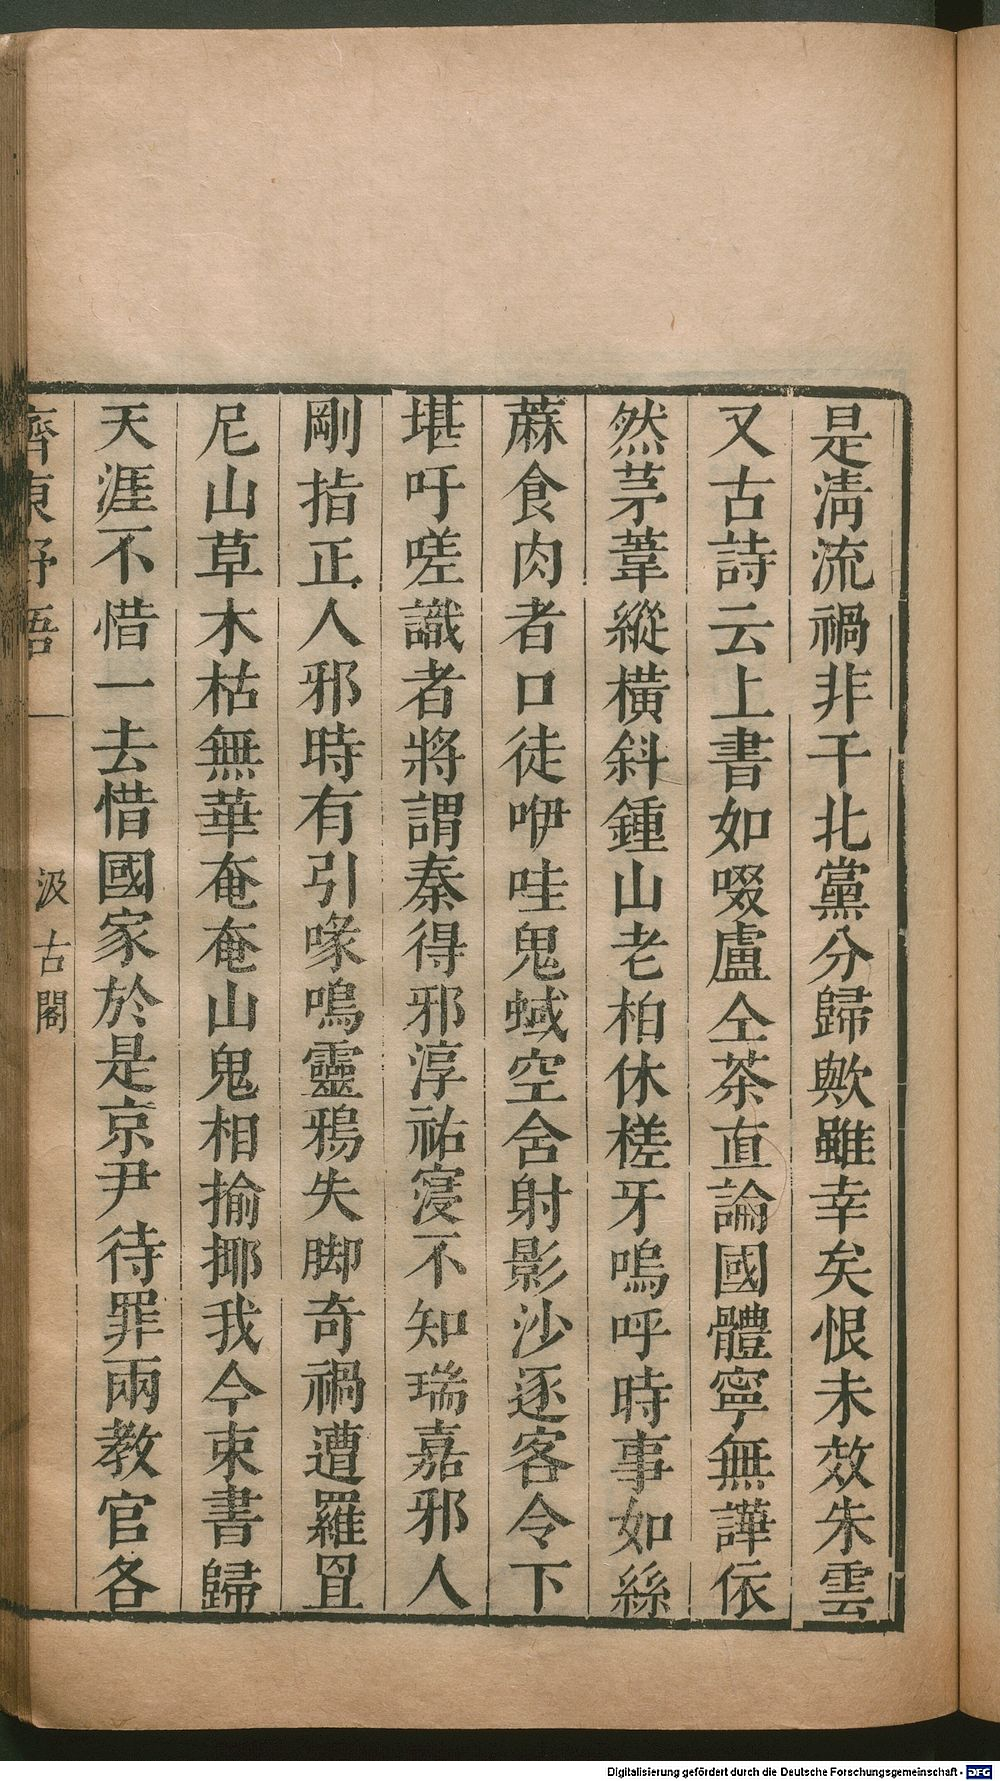 是清流禍非干北黨分歸歟雖幸矣恨未效朱雲
又古詩云上書如啜盧仝茶直論國體寧無譁依
然茅葦縱橫斜鍾山老柏休槎牙嗚呼時事如絲
蔴食肉者口徒咿哇鬼蜮空舍射影沙逐客令下
堪吁嗟識者將謂秦得邪淳祐寖不知瑞嘉邪人
剛指正人邪時有引喙鳴靈鴉失脚奇禍遭羅罝
尼山草木枯無華奄奄山鬼相揄揶我今束書歸
天涯不惜一去惜國家於是京尹待罪兩教官各
齊東野語 一
汲古閣
Digitalisierung gefördert durch die Deutsche Forschungsgemeinschaft - DFG